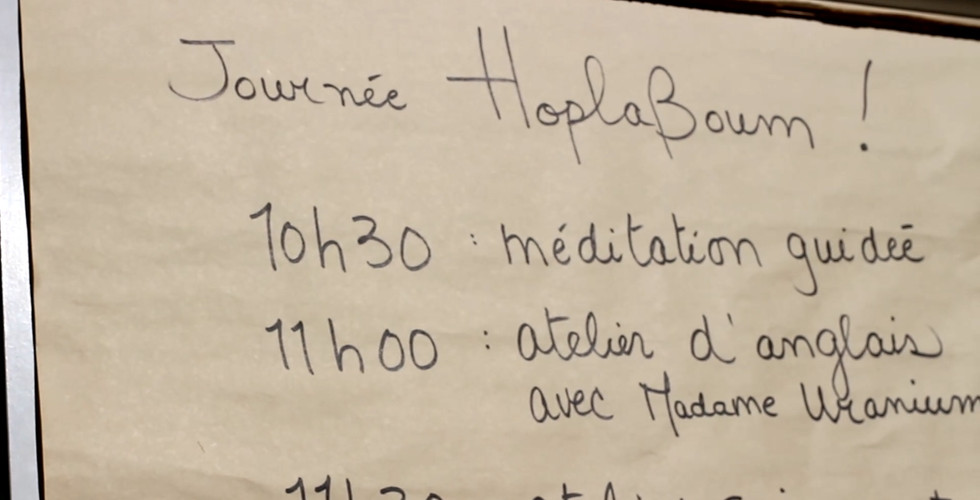 Journée HoplaBoum !
10h30 : méditation guidée
11h00 : atelier d'anglais
avec Madame Uranium